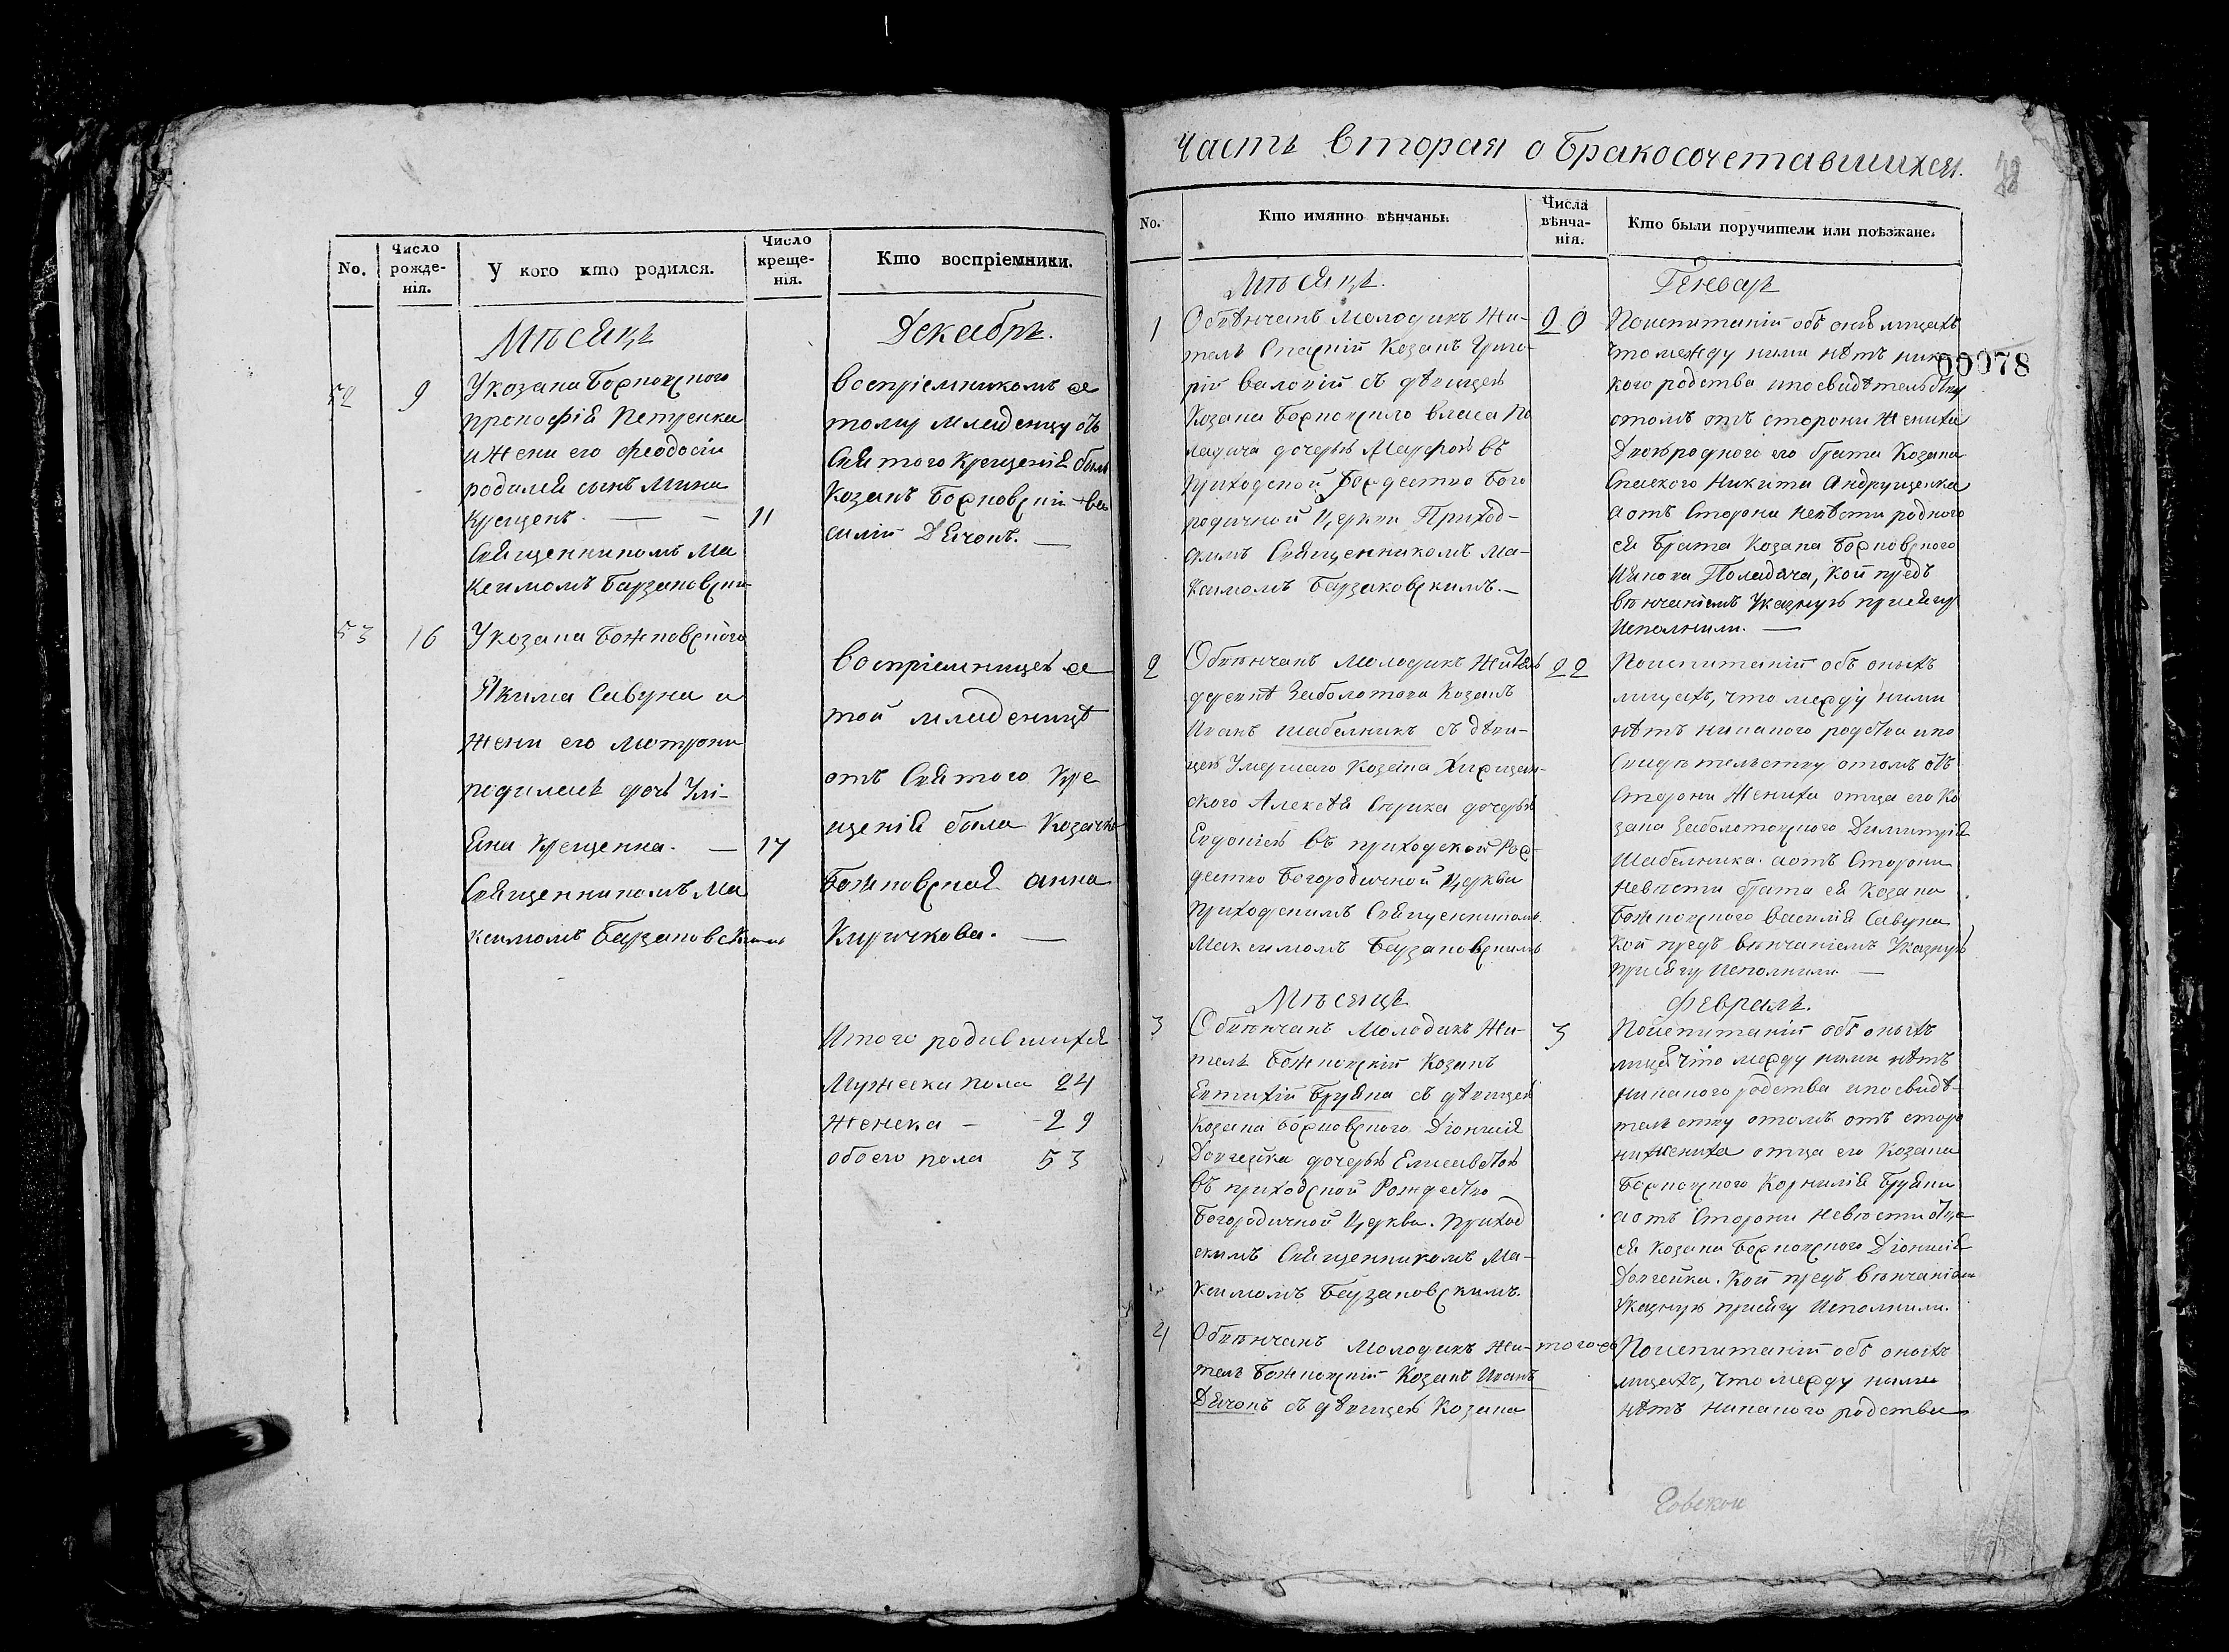 No.
Число
рожде-
нія.
У кого кто родился.
Число
креще-
нія.
Кто воспріемники.
Мѣсяцъ
Декабрь.
52
9
Укозака Божковского
прокофія Петренка
ижени его Феодосіи
родился сынъ Мина
Крещенъ. — —
11
Священникомъ Ма
ксимомъ Барзаковски
воспріемникомъ се
тому младенцу отъ
Святого Крещенія былъ
Козакъ Божковскій ва
силій Дячокъ. —
53
16
Укозака Божковского
Якима Савуна и
жени его Мотрони
родилась дочь Улі-
яна Крещенна. —
17
Священникомъ Ма
ксимомъ Барзаковскимъ
Воспріемницею се
той младеницѣ
отъ Святого Кре
щенія была Козачка
Божковская анна
Киричкова. —
Итого родившихся
Мужеска пола 24
женска - 29
обоего пола 53
Часть вторая о бракосочетавшихся.
78
No.
Кто имянно вѣнчаны.
Числа
вѣнча-
нія.
Кто были поручители или поѣзжане.
00078
Мѣсяцъ.
Генварь
1
Обвѣнчанъ Молодикъ Жи-
тель Спаскій Козакъ Григо-
рій валокій съ дѣвицею
Козака Божковского власа По
ладича дочерью Марфою въ
Приходской Рождество Бого
родичной Церкви Приход-
скимъ Священникомъ Ма-
ксимомъ Барзаковскимъ. —
20
Поиспитаніи объ онихъ лицахъ
что между ними нѣтъ ника
кого родства ипосвидѣтельству
отомъ отъ сторони Жениха
Двоюродного его брата Козака
Спаского Никити Андрущенка
аотъ Сторони невѣсти родного
ея брата Козака Божковского
Поладича, Кои предъ
вѣнчаніемъ Указную присягу
Исполнили. —
2
Обвѣнчанъ Молодикъ Житель
деревнѣ Заболотока Козакъ
Иванъ шабелникъ съ дѣви-
цею Умершаго Козака
ского Алексѣя Сирика дочерью
Евдокіею въ приходской Рож-
дество Богородичной Церкви
приходскимъ Священникомъ
Максимомъ Барзаковскимъ
22
Поиспитаніи объ оныхъ
лицахъ, что между ними
нѣтъ никакого родства ипо
Свидѣтельству отомъ отъ
Сторони Жениха отца его Ко
зака Заболотского Димитрія
Шабелника. аотъ Сторони
невѣсти брата ея Козака
Божковского василія Савуна
Кои предъ вѣнчаніемъ Указную
присягу Исполнили —
Мѣсяцъ
Февраль.
3
Обвѣнчанъ Молодикъ Жи-
тель Божковскій Козакъ
Евтихій Бруяка съ дѣвицею
Козака Божковского Діонисія
Довгейка дочерью Елисаветою
въ приходской Рождество
Богородичной Церкви. Приход
скимъ Священникомъ Ма-
ксимомъ Барзаковскимъ.
3
Поиспитаніи объ оныхъ
лицахъ Что между ними нѣтъ
никакого родства ипосвидѣ-
тельству отомъ отъ сторо
нижениха отца его Козака
Божковского Корнилія Бруяки
аотъ Сторони невѣсти отца
ея Козака Божковского Діонисія
Довгейка. Кои предъ вѣнчаніемъ
Указную присягу Исполнили.
4
Обвѣнчанъ Молодикъ Жи-
тель Божковскій Козакъ Иванъ
Дячокъ съ дѣвицею Козака
тогожъ
Поиспитаніи объ оныхъ
лицахъ, Что между ними
нѣтъ никакого родства